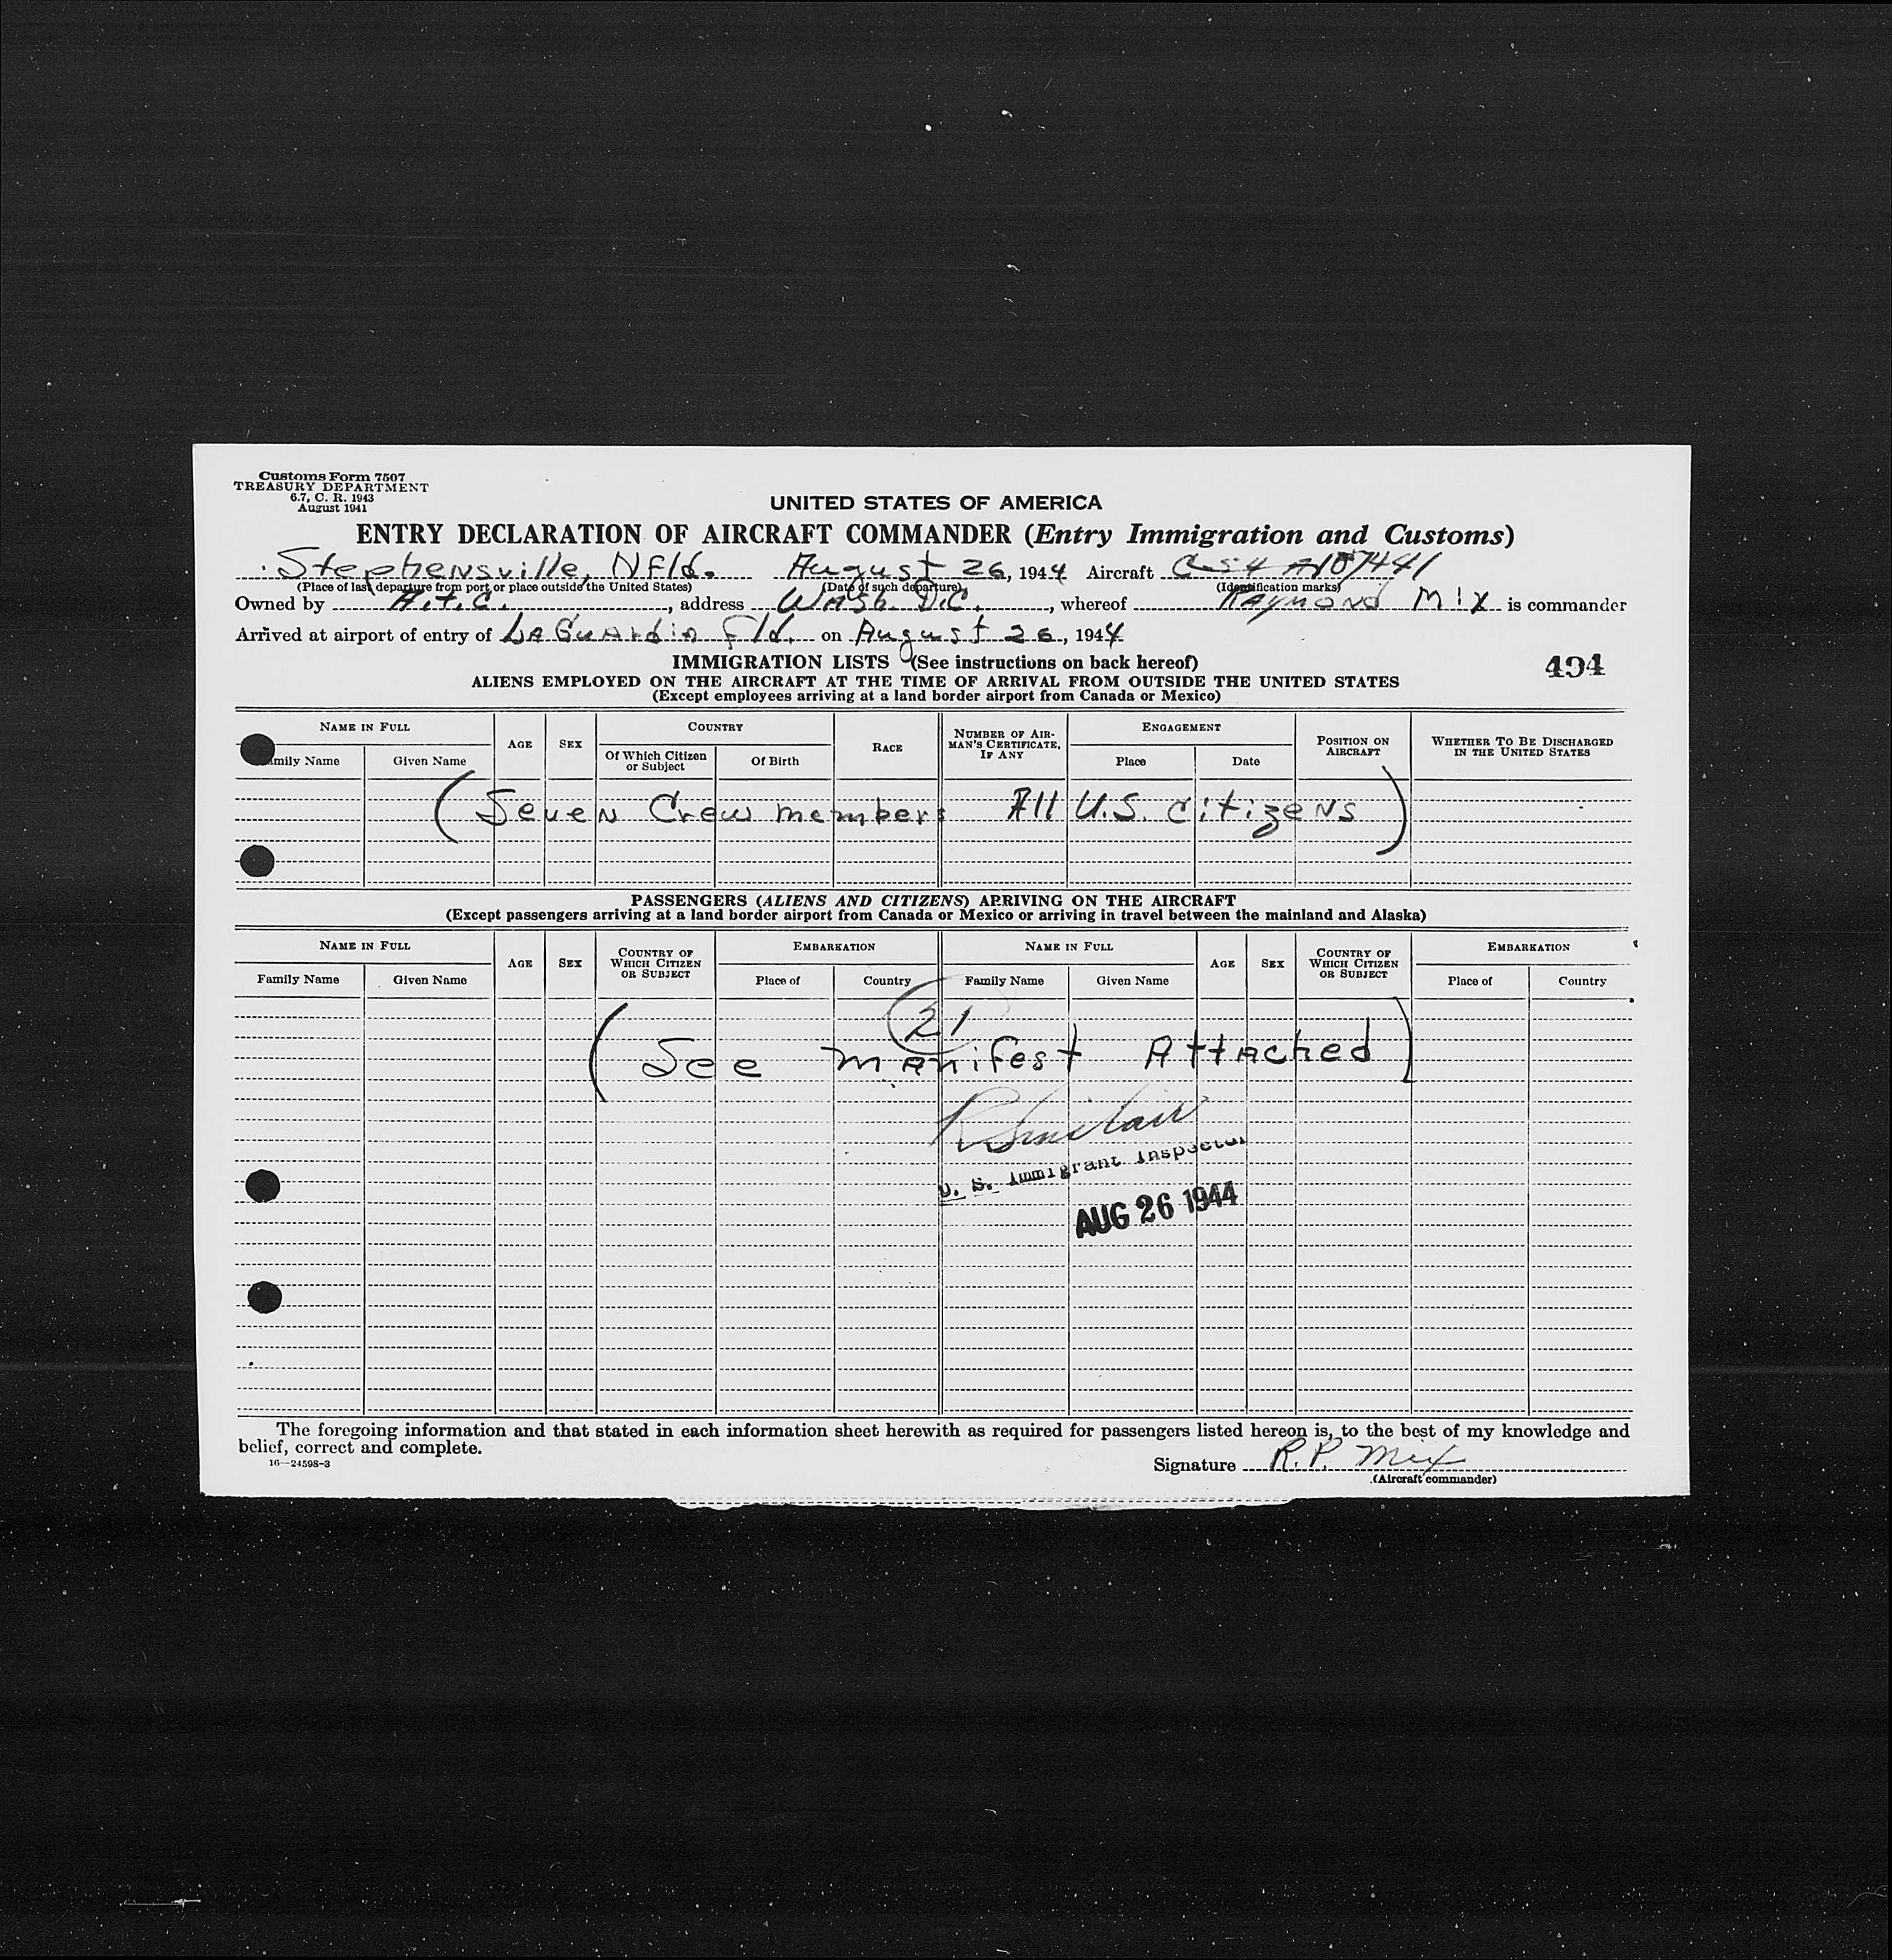 Customs Form 7507
TREASURY DEPARTMENT
6.7, C. R. 1943
August 1941
UNITED STATES OF AMERICA
ENTRY DECLARATION OF AIRCRAFT COMMANDER (Entry Immigration and Customs)
Stephensville, Nfld. August 26, 1944 Aircraft C54 A107441
(Place of last departure from port or place outside the United States) (Date of such departure) (Identification marks)
Owned by A.T.C., address Wash. D.C., whereof Raymond Mix is commander
Arrived at airport of entry of LaGuardia Fld. on August 26, 1944
IMMIGRATION LISTS (See instructions on back hereof)
494
ALIENS EMPLOYED ON THE AIRCRAFT AT THE TIME OF ARRIVAL FROM OUTSIDE THE UNITED STATES
(Except employees arriving at a land border airport from Canada or Mexico)
NAME IN FULL AGE SEX COUNTRY RACE NUMBER OF AIRMAN'S CERTIFICATE, IF ANY ENGAGEMENT POSITION ON AIRCRAFT WHETHER TO BE DISCHARGED IN THE UNITED STATES
mily Name Given Name Of Which Citizen or Subject Of Birth Place Date
(Seven Crew members All U.S. citizens)
PASSENGERS (ALIENS AND CITIZENS) ARRIVING ON THE AIRCRAFT
(Except passengers arriving at a land border airport from Canada or Mexico or arriving in travel between the mainland and Alaska)
NAME IN FULL AGE SEX COUNTRY OF WHICH CITIZEN OR SUBJECT EMBARKATION NAME IN FULL AGE SEX COUNTRY OF WHICH CITIZEN OR SUBJECT EMBARKATION
Family Name Given Name Place of Country Family Name Given Name Place of Country
21
(See manifest Attached)
R Sinclair
U. S. Immigrant Inspector
AUG 26 1944
The foregoing information and that stated in each information sheet herewith as required for passengers listed hereon is, to the best of my knowledge and
belief, correct and complete.
16—24598-3
Signature R.P. Mix
(Aircraft commander)